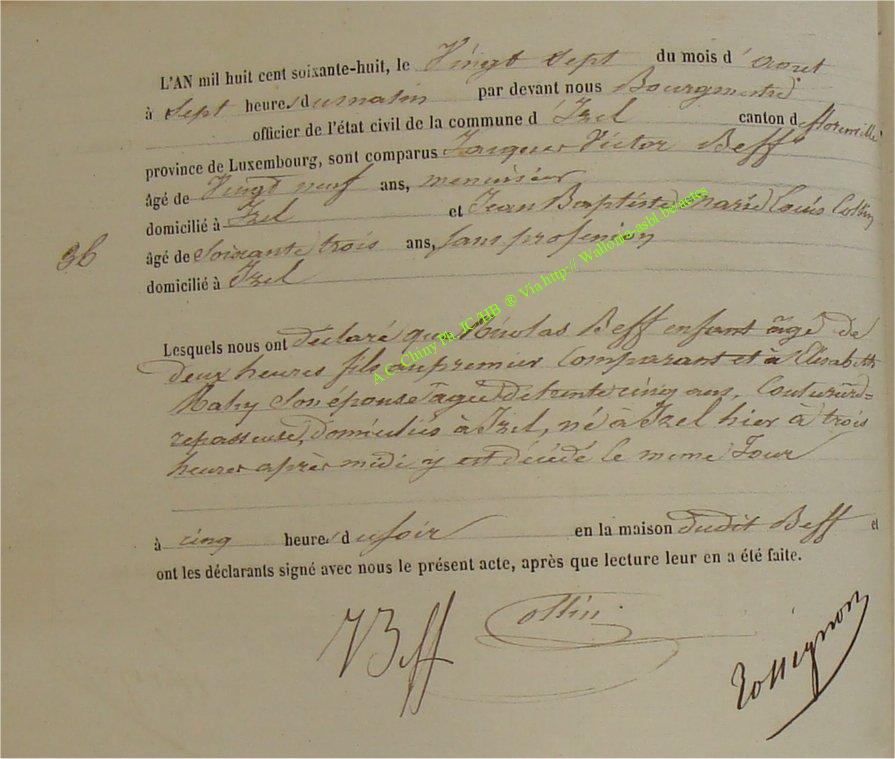 L'AN mil huit cent soixante-huit, le Vingt Sept du mois d'aout
à Sept heures du matin par devant nous Bourgmestre
officier de l'état civil de la commune d'Izel canton de florenville
province de Luxembourg, sont comparus Jacques Victor Beff
âgé de Vingt neuf ans, menuisier
domicilié à Izel et Jean Baptiste Marie Louis Collin
36 âgé de Soixante trois ans, sans profession
domicilié à Izel
Lesquels nous ont déclaré que Nicolas Beff enfant âgé de
deux heures fils au premier Comparant et à Elisabeth
Mahy Son épouse âgée de trente cinq ans, Couturière=
repasseuse, domiciliés à Izel, né à Izel hier à trois
heures après midi y est décédé le meme Jour
à cinq heures du soir en la maison dudit Beff et
ont les déclarants signé avec nous le présent acte, après que lecture leur en a été faite.
VBeff Collin Rossignon
A.C. Chiny Ph. JC/HB ® Via http:// Wallonia-asbl.be/actes